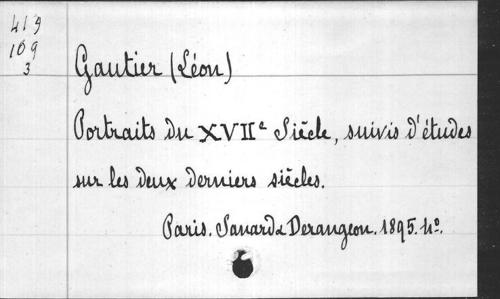 419
109
3
Gautier (Léon)
Portraits du XVIIe Siècle, suivis d'études
sur les deux derniers siècles.
Paris. Sanard & Derangeon. 1895. 4o.